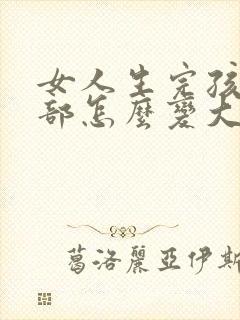 女人生完孩
部怎麼變大
葛洛麗亞伊斯